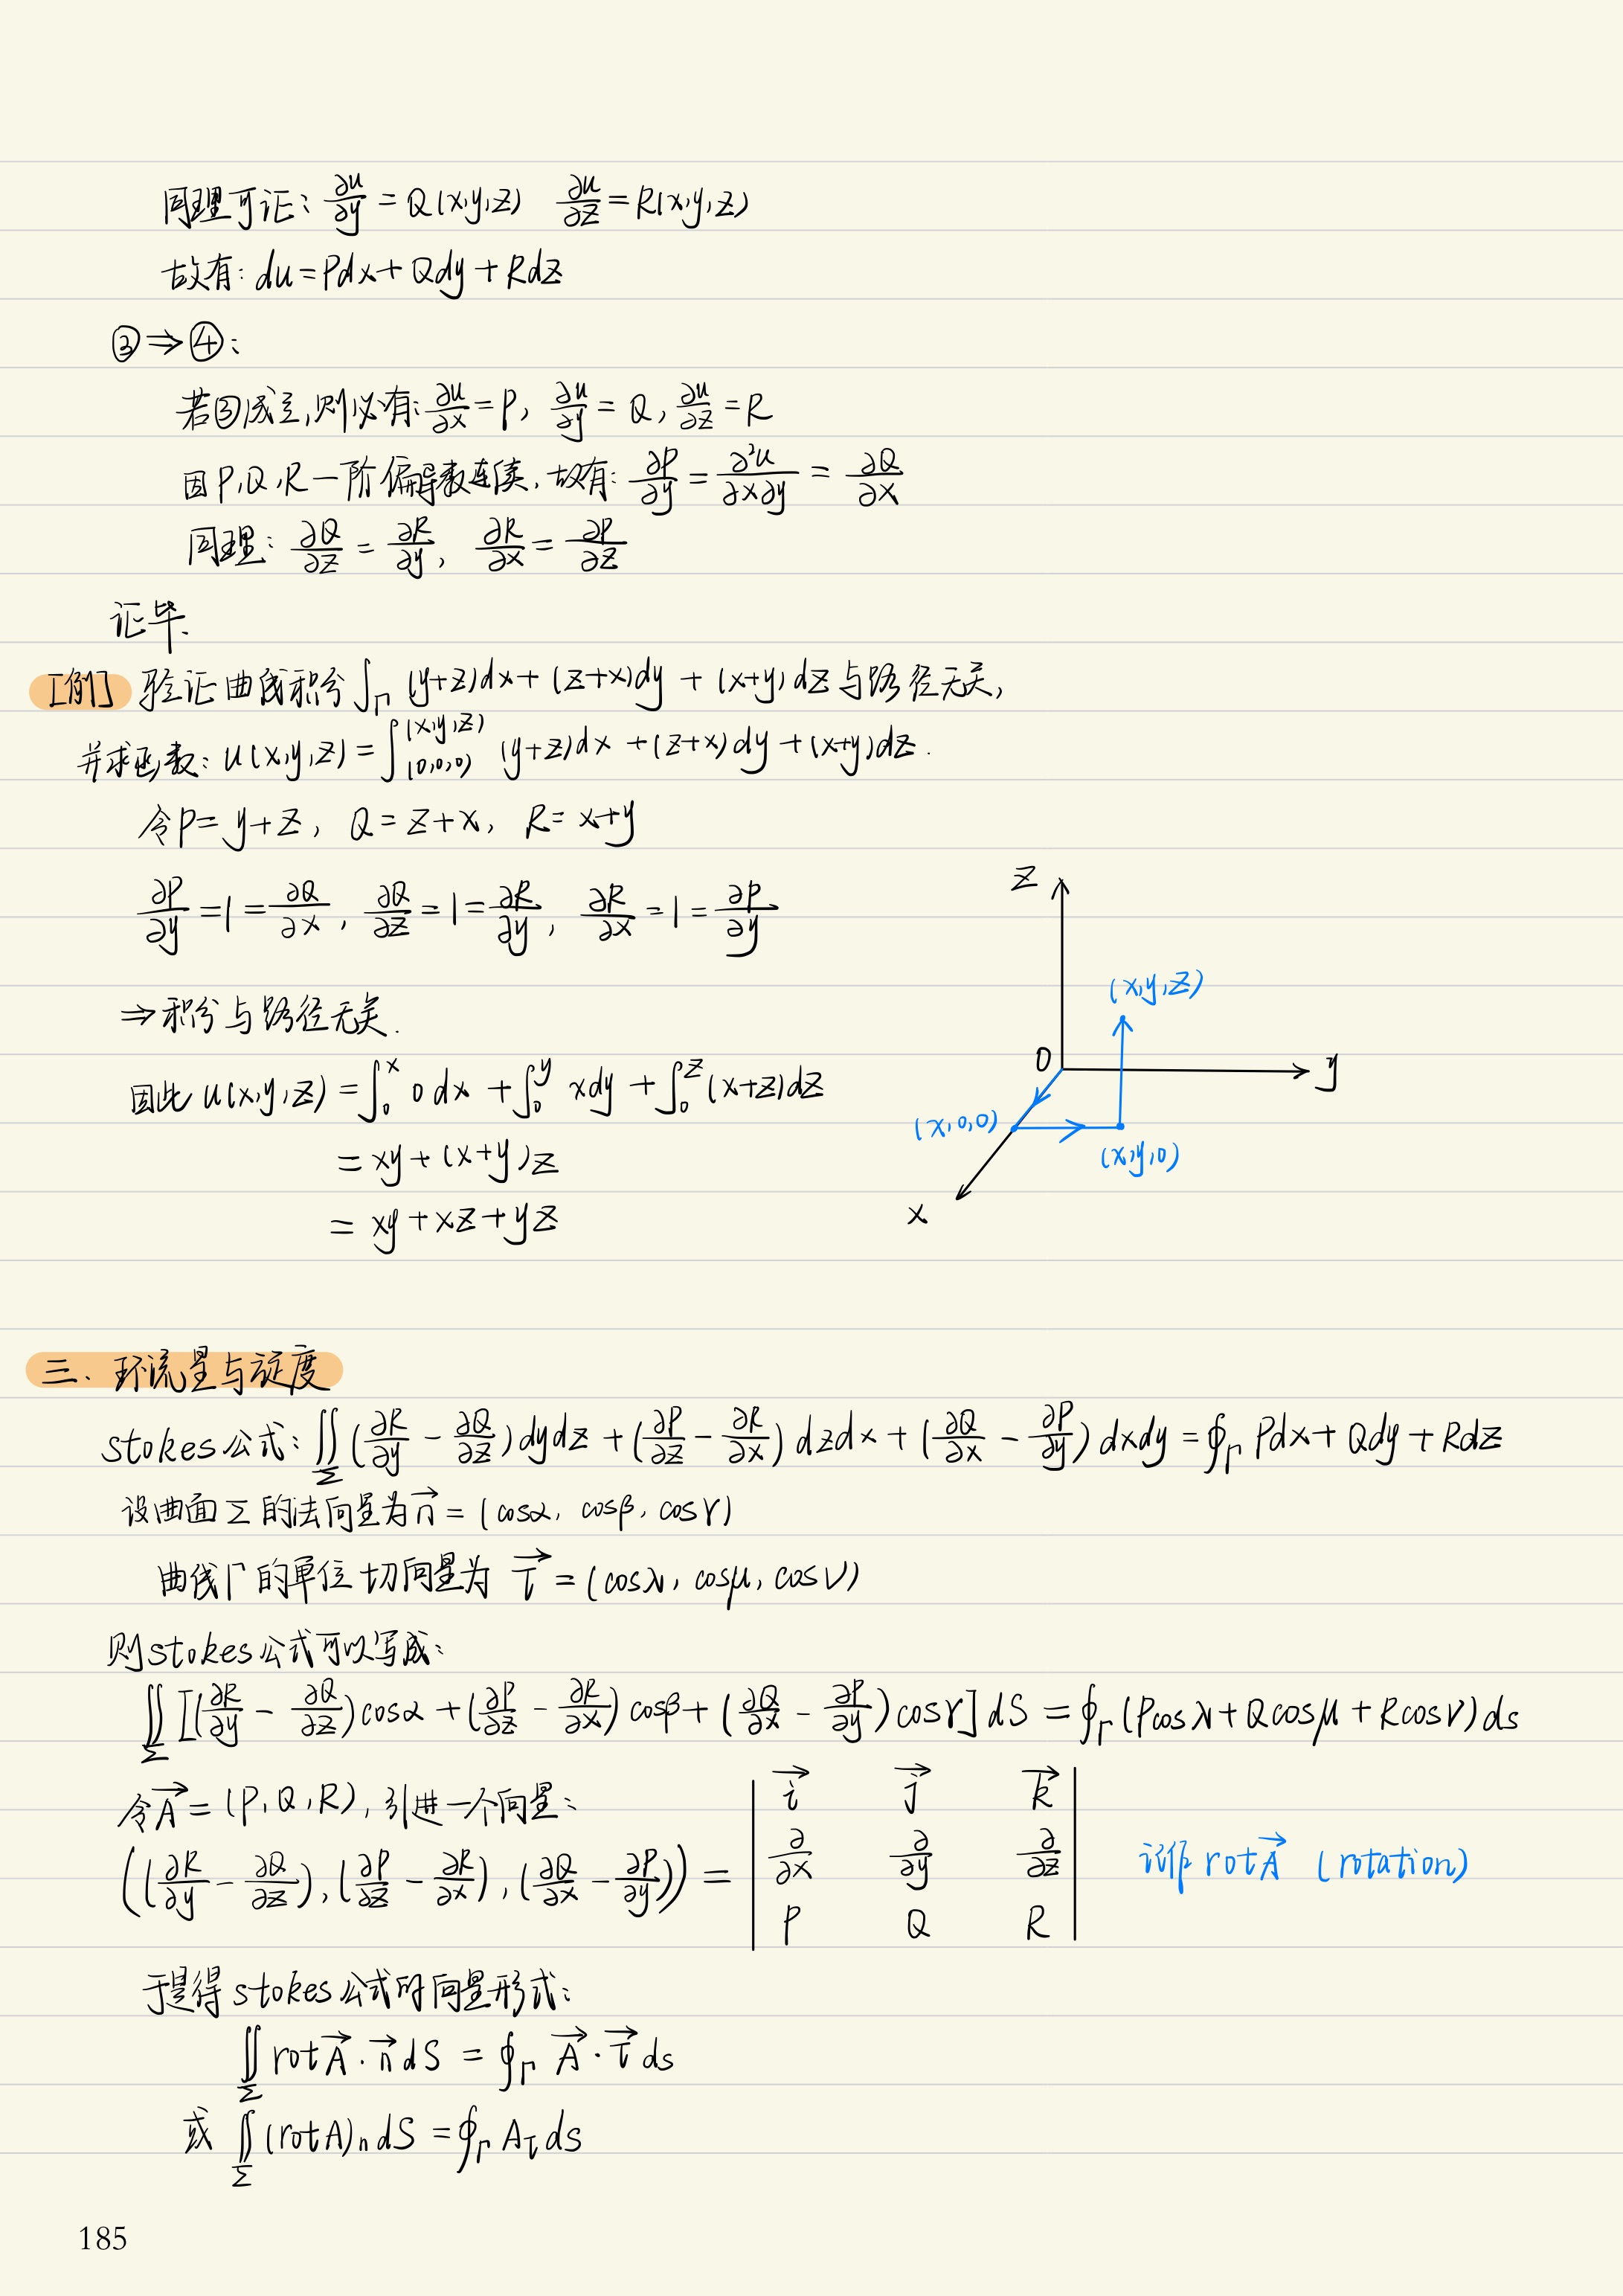 同理可证: ∂u/∂y = Q(x,y,z) ∂u/∂z = R(x,y,z)
故有: du = Pdx + Qdy + Rdz
③⇒④:
若③成立,则必有: ∂u/∂x = P, ∂u/∂y = Q, ∂u/∂z = R
因P,Q,R一阶偏导数连续,故有: ∂P/∂y = ∂²u/∂x∂y = ∂Q/∂x
同理: ∂Q/∂z = ∂R/∂y, ∂R/∂x = ∂P/∂z
证毕.
[例] 验证曲线积分 ∫_Γ (y+z)dx + (z+x)dy + (x+y)dz 与路径无关,
并求函数: u(x,y,z) = ∫_(0,0,0)^(x,y,z) (y+z)dx + (z+x)dy + (x+y)dz.
令P = y+z, Q = z+x, R = x+y
∂P/∂y = 1 = ∂Q/∂x, ∂Q/∂z = 1 = ∂R/∂y, ∂R/∂x = 1 = ∂P/∂y
⇒积分与路径无关.
因此 u(x,y,z) = ∫_0^x 0 dx + ∫_0^y xdy + ∫_0^z (x+z)dz
= xy + (x+y)z
= xy + xz + yz
z
(x,y,z)
O
y
(x,0,0)
(x,y,0)
x
三. 环流量与旋度
stokes公式: ∬_Σ (∂R/∂y - ∂Q/∂z)dydz + (∂P/∂z - ∂R/∂x)dzdx + (∂Q/∂x - ∂P/∂y)dxdy = ∮_Γ Pdx + Qdy + Rdz
设曲面Σ的法向量为 n→ = (cosα, cosβ, cosγ)
曲线Γ的单位切向量为 τ→ = (cosλ, cosμ, cosν)
则stokes公式可以写成:
∬_Σ [(∂R/∂y - ∂Q/∂z)cosα + (∂P/∂z - ∂R/∂x)cosβ + (∂Q/∂x - ∂P/∂y)cosγ]dS = ∮_Γ (Pcosλ + Qcosμ + Rcosν)ds
令A→ = (P,Q,R), 引进一个向量:
((∂R/∂y - ∂Q/∂z), (∂P/∂z - ∂R/∂x), (∂Q/∂x - ∂P/∂y)) = | i→ j→ k→ |
| ∂/∂x ∂/∂y ∂/∂z | 记作 rotA→ (rotation)
| P Q R |
于是得stokes公式的向量形式:
∬_Σ rotA→ · n→ dS = ∮_Γ A→ · τ→ ds
或 ∬_Σ (rotA)_n dS = ∮_Γ A_τ ds
185